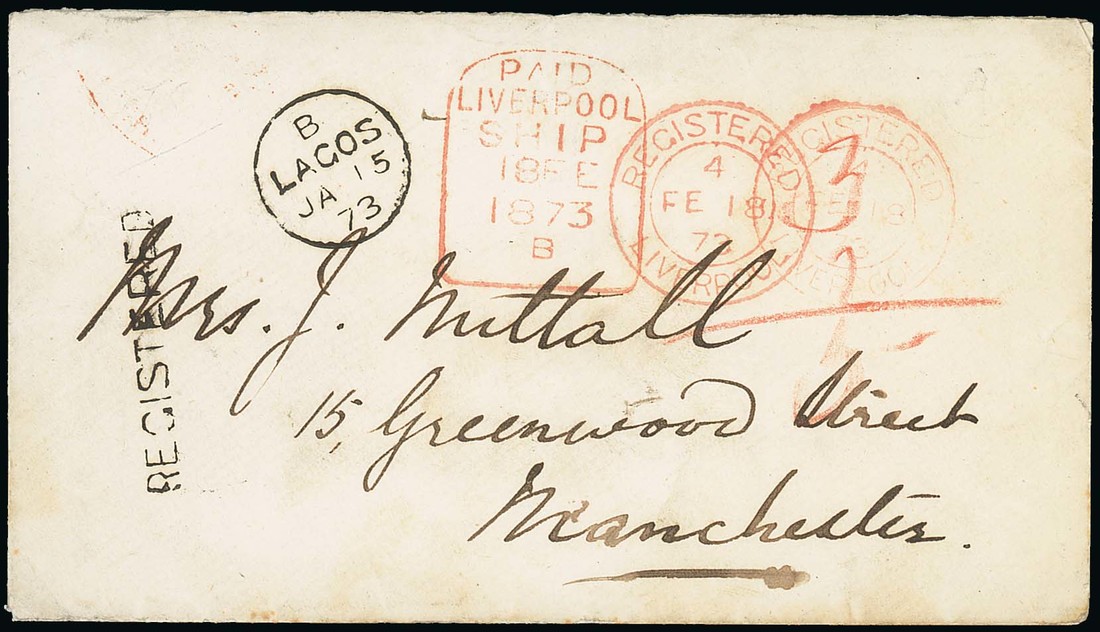 B
LAGOS
JA 15
73
PAID
LIVERPOOL
SHIP
18 FE
1873
B
REGISTERED
4
FE 18
73
LIVERPOOL
REGISTERED
4
FE 18
LIVERPOOL
3
REGISTERED
Mrs. J. Nuttall
15, Greenwood Street
Manchester.